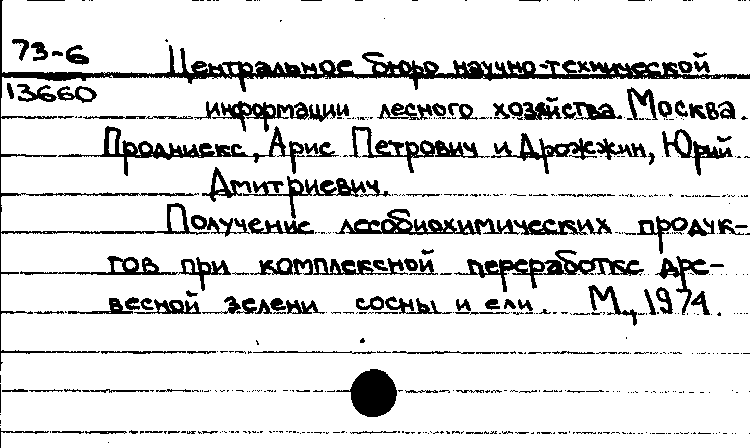 73-6
13660
Центральное бюро научно-технической
информации лесного хозяйства. Москва.
Продниекс, Арис Петрович и Дрожжин, Юрий
Дмитриевич.
Получение лесобиохимических продук-
тов при комплексной переработке дре-
весной зелени сосны и ели. М., 1974.